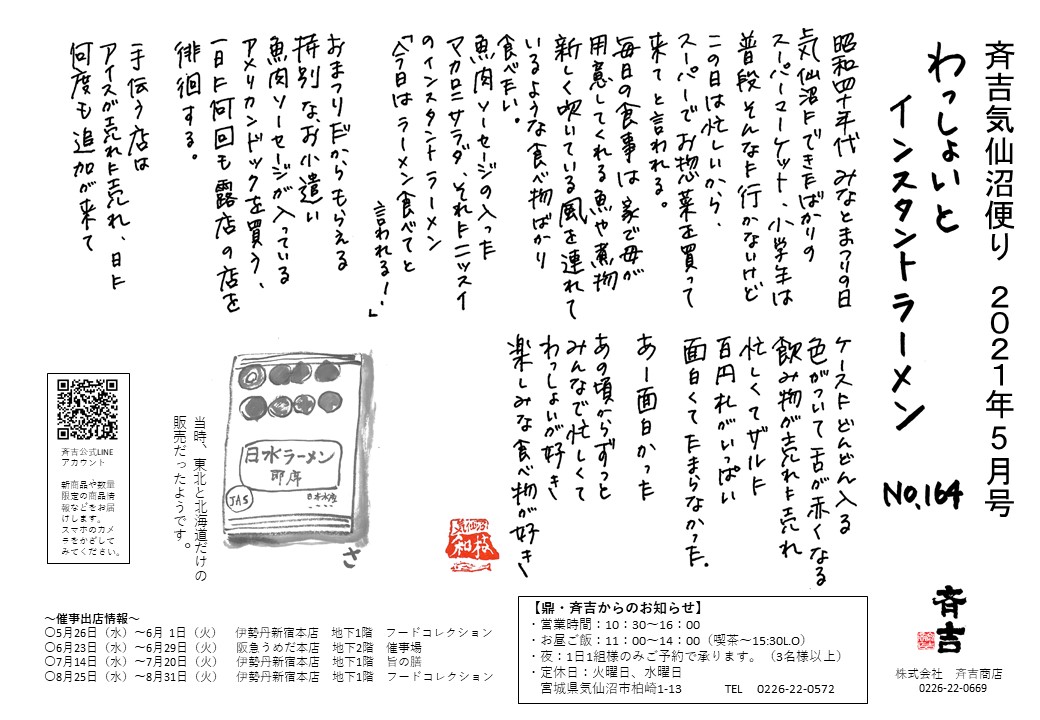 斉吉気仙沼便り　2021年5月号
わっしょいと
インスタントラーメン
No.164
昭和四十年代 みなとまつりの日
気仙沼にできたばかりの
スーパーマーケット、小学生は
普段そんなに行かないけど
この日は忙しいから、
スーパーでお惣菜を買って
来てと言われる。
毎日の食事は家で母が
用意してくれる魚や煮物
新しく吹いている風を連れて
いるような食べ物ばかり
食べたい。
魚肉ソーセージの入った
マカロニサラダ、それにニッスイ
のインスタントラーメン
「今日はラーメン食べてと
言われる！」
おまつりだからもらえる
特別なお小遣い
魚肉ソーセージが入っている
アメリカンドックを買う、
一日に何回も露店の店を
徘徊する。
手伝う店は
アイスが売れに売れ、日に
何度も追加が来て
ケースにどんどん入る
色がついて舌が赤くなる
飲み物が売れに売れ
忙しくてザルに
百円札がいっぱい
面白くてたまらなかった。
あー面白かった
あの頃からずっと
みんなで忙しくて
わっしょいが好き
楽しみな食べ物が好き
日水ラーメン
即席
JAS
日本水産
さ
当時、東北と北海道だけの
販売だったようです。
気仙沼
和枝
斉吉公式LINE
アカウント
新商品や数量
限定の商品情
報などをお届
けします。
スマホのカメ
ラをかざして
みてください。
～催事出店情報～
〇5月26日（水）～6月 1日（火）　伊勢丹新宿本店　地下1階　フードコレクション
〇6月23日（水）～6月29日（火）　阪急うめだ本店　地下2階　催事場
〇7月14日（水）～7月20日（火）　伊勢丹新宿本店　地下1階　旨の膳
〇8月25日（水）～8月31日（火）　伊勢丹新宿本店　地下1階　フードコレクション
【鼎・斉吉からのお知らせ】
・営業時間：10：30～16：00
・お昼ご飯：11：00～14：00（喫茶～15:30L.O）
・夜：1日1組様のみご予約で承ります。（3名様以上）
・定休日：火曜日、水曜日
宮城県気仙沼市柏崎1-13　　TEL　0226-22-0572
斉吉
株式会社　斉吉商店
0226-22-0669